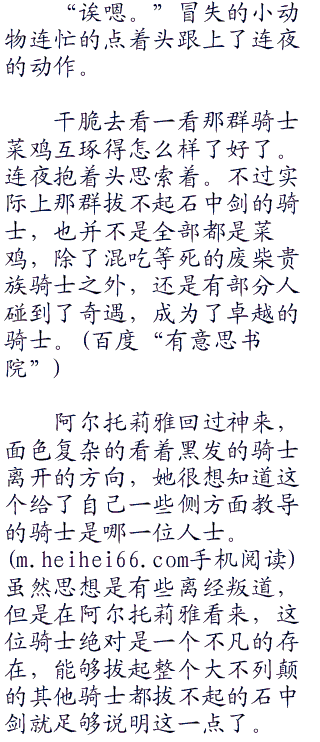 “诶嗯。”冒失的小动
物连忙的点着头跟上了连夜
的动作。
干脆去看一看那群骑士
菜鸡互琢得怎么样了好了。
连夜抱着头思索着。不过实
际上那群拔不起石中剑的骑
士，也并不是全部都是菜
鸡，除了混吃等死的废柴贵
族骑士之外，还是有部分人
碰到了奇遇，成为了卓越的
骑士。(百度“有意思书
院”)
阿尔托莉雅回过神来，
面色复杂的看着黑发的骑士
离开的方向，她很想知道这
个给了自己一些侧方面教导
的骑士是哪一位人士。
(m.heihei66.com手机阅读)
虽然思想是有些离经叛道，
但是在阿尔托莉雅看来，这
位骑士绝对是一个不凡的存
在，能够拔起整个大不列颠
的其他骑士都拔不起的石中
剑就足够说明这一点了。